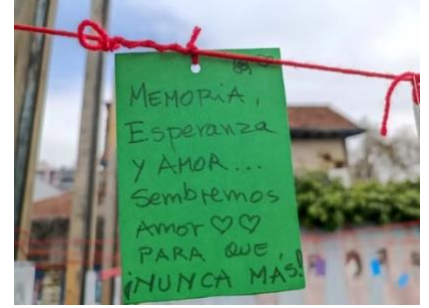 MEMORIA,
Esperanza
Y AMOR...
Sembremos
Amor ♡♡
PARA QUE
¡NUNCA MÁS!